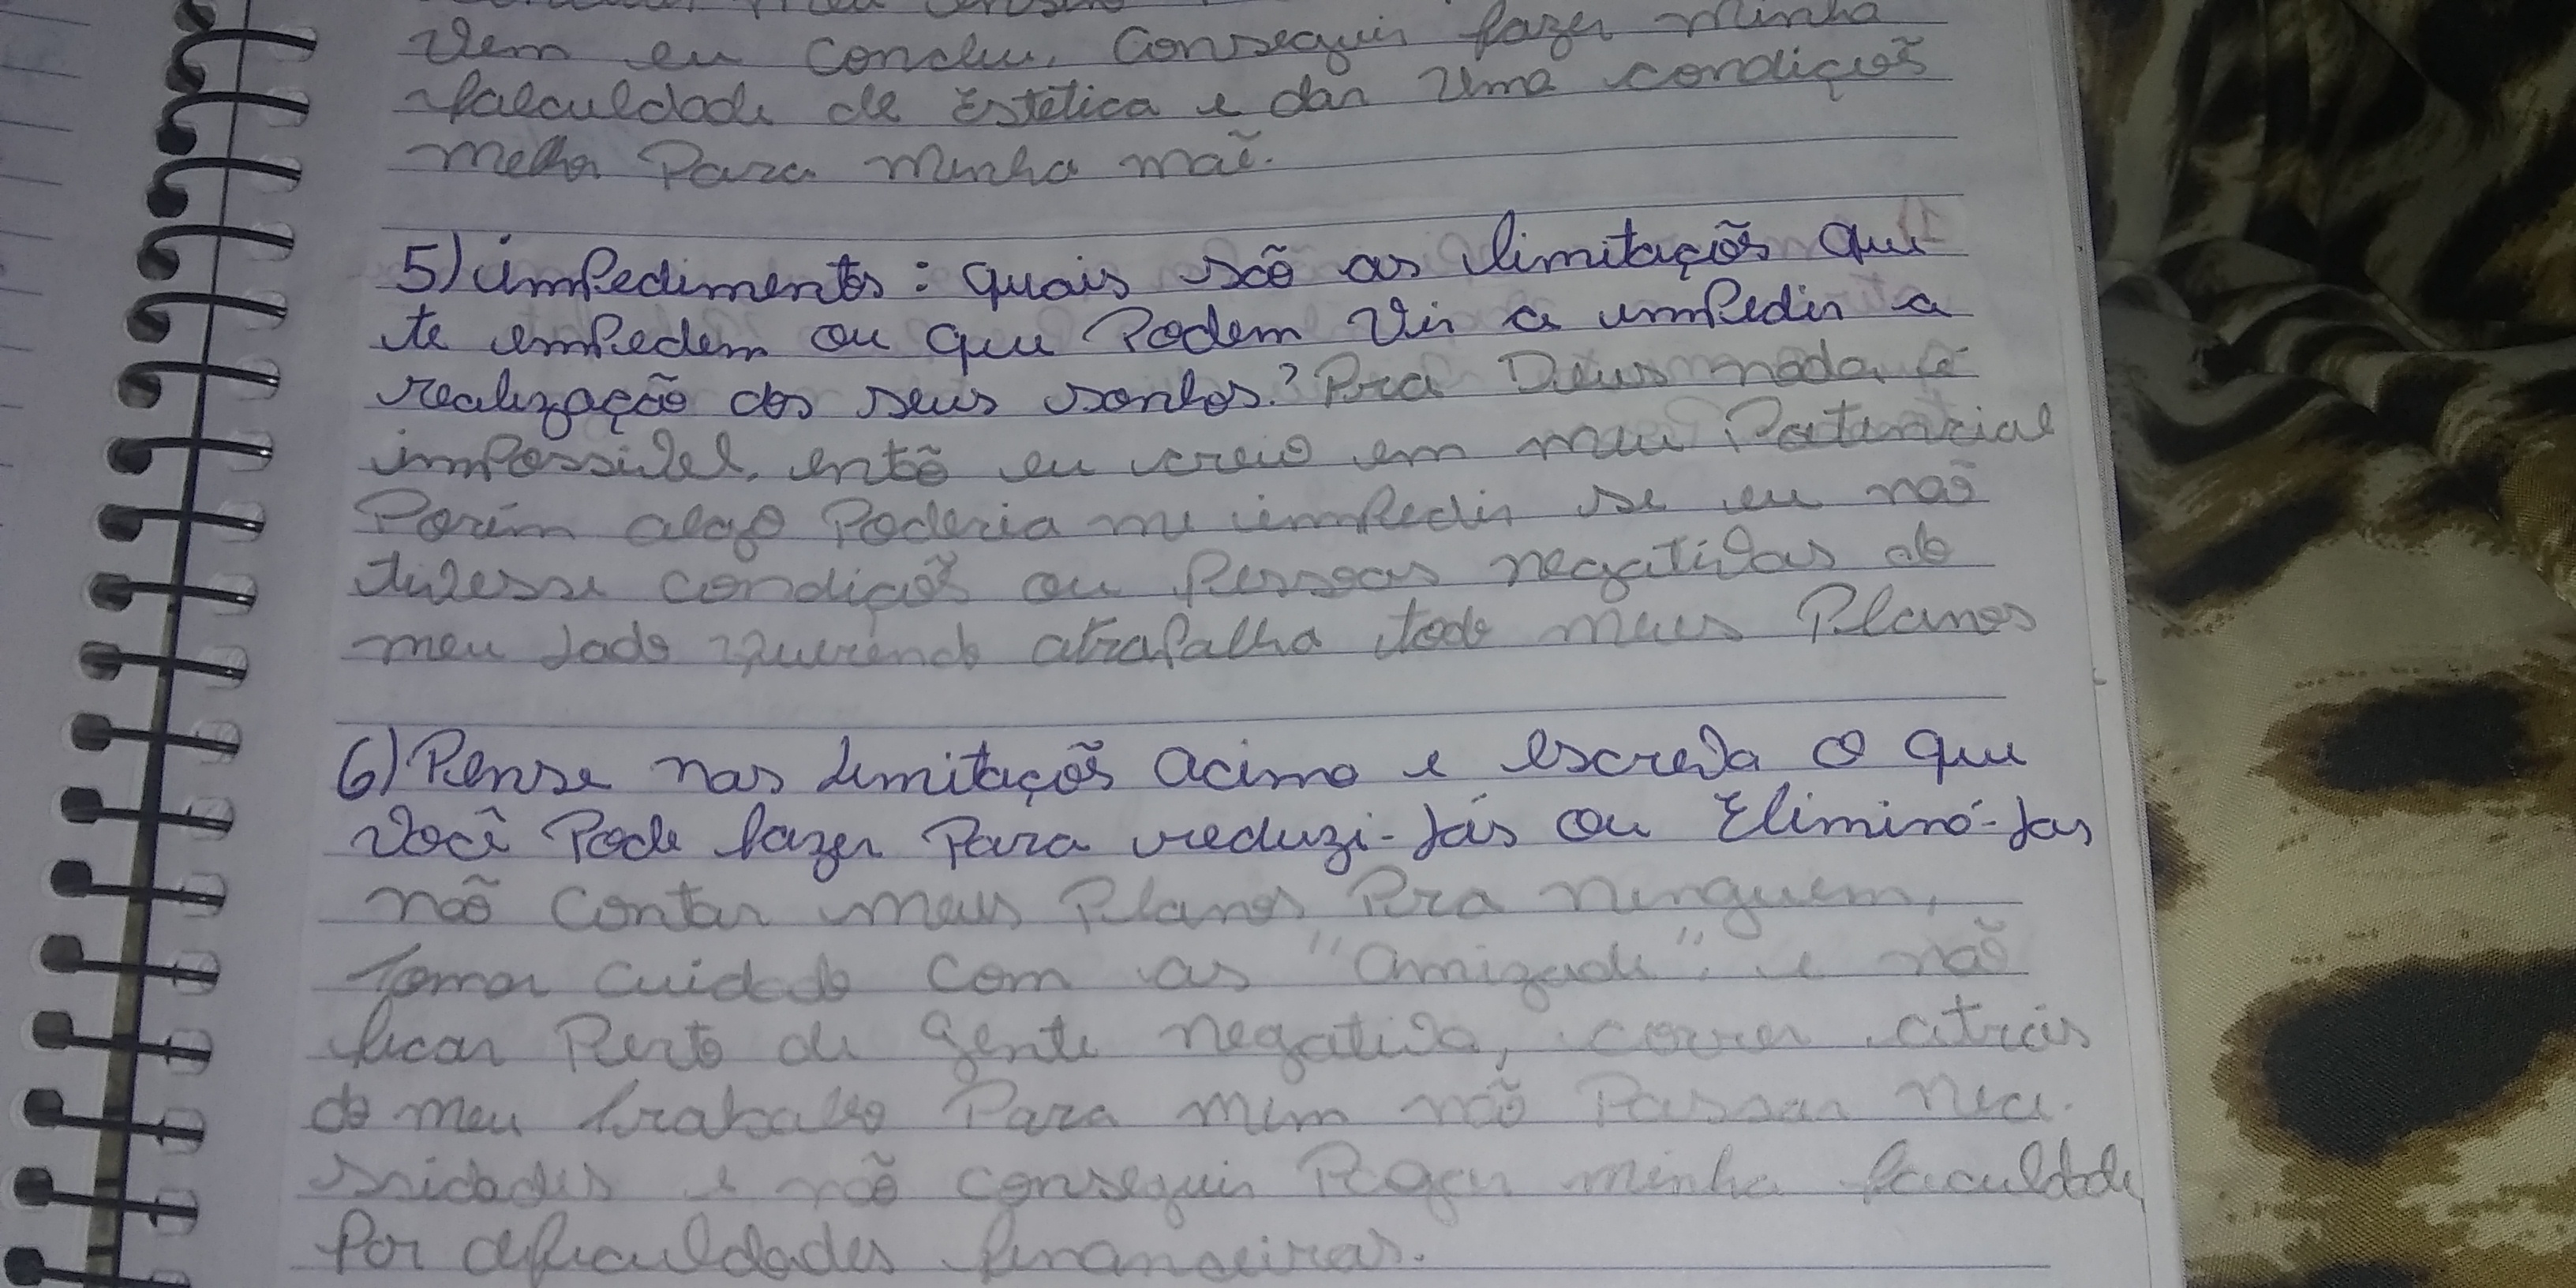 vem eu conclu. Conseguir fazer minha
falculdade de Estética e dar uma condiçoẽs
melhor para minha maẽ.
5) impedimentos: quais são as limitaçõs que
te impedem ou que podem vir a impedir a
realização dos seus sonhos? Pra Deus nada é
impossivel, entõ eu creio em meu Patencial
Porém alago Poderia me impedir se eu naõ
tivesse condiçoẽs ou pessoas negativas do
meu lado querendo atrapalha todo meus Planos
6) Pense nas limitaçõs acima e escreva o que
você pode fazer para reduzi-lás ou Eliminá-las
não contar meus Planos Pra ninguem,
tomar cuidado com as "amizade". e naõ
ficar Perto de gente negativa, correr atrás
do meu trabalho Para mim não Passar nece-
ssidades e não conseguir Pagar minha faculdade
por dificuldades financeiras.